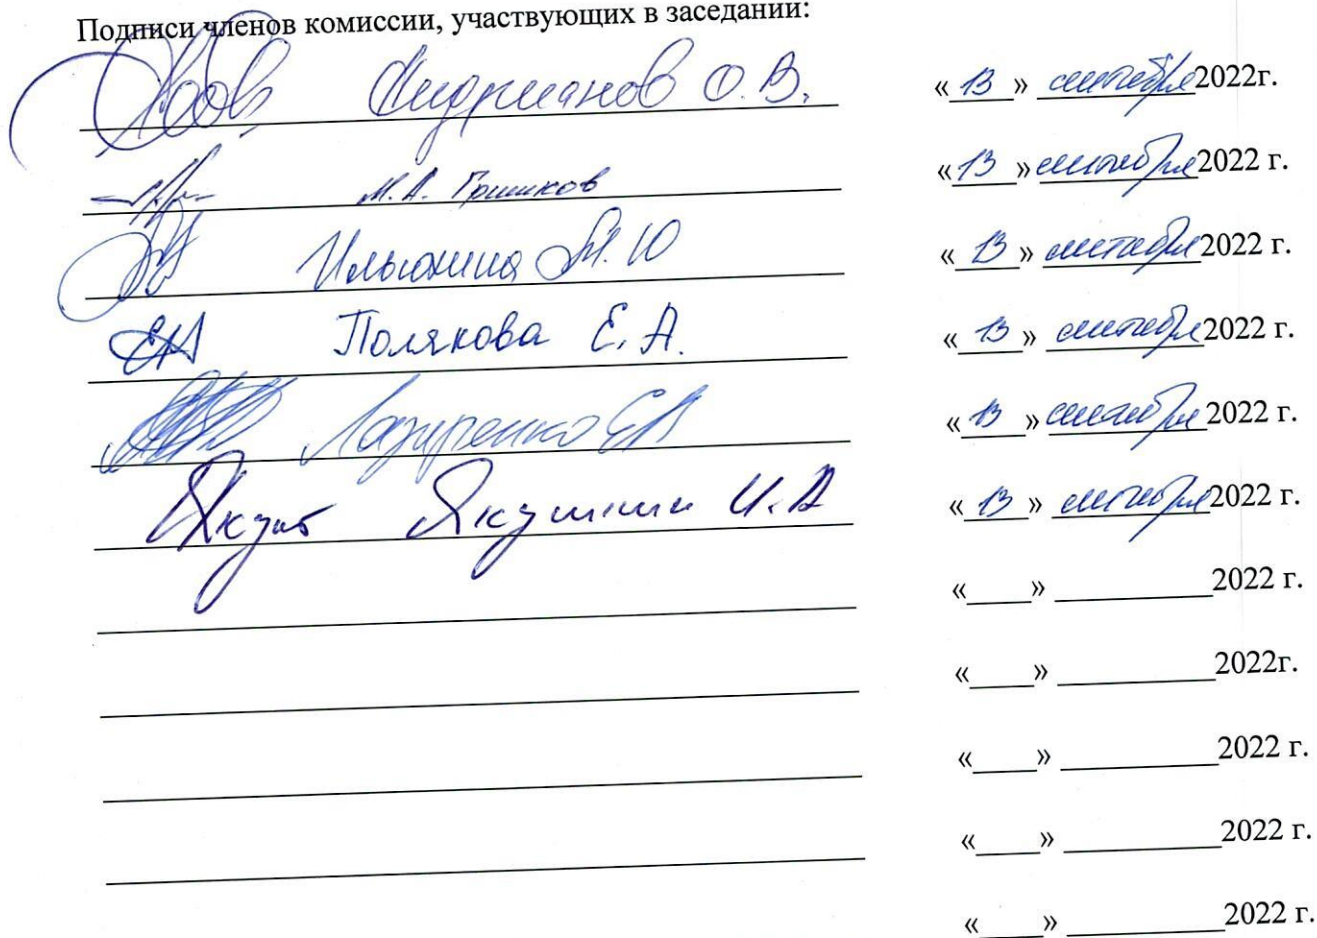 Подписи членов комиссии, участвующих в заседании:
Андрианов О.В. «13» сентября 2022г.
М.А. Гришков «13» сентября 2022 г.
Ильюшина М.Ю «13» сентября 2022 г.
Полякова Е.А. «13» сентября 2022 г.
Лазуренко ЕА «13» сентября 2022 г.
Якушкин И.А «13» сентября 2022 г.
«____» __________2022 г.
«____» __________2022г.
«____» __________2022 г.
«____» __________2022 г.
«____» __________2022 г.